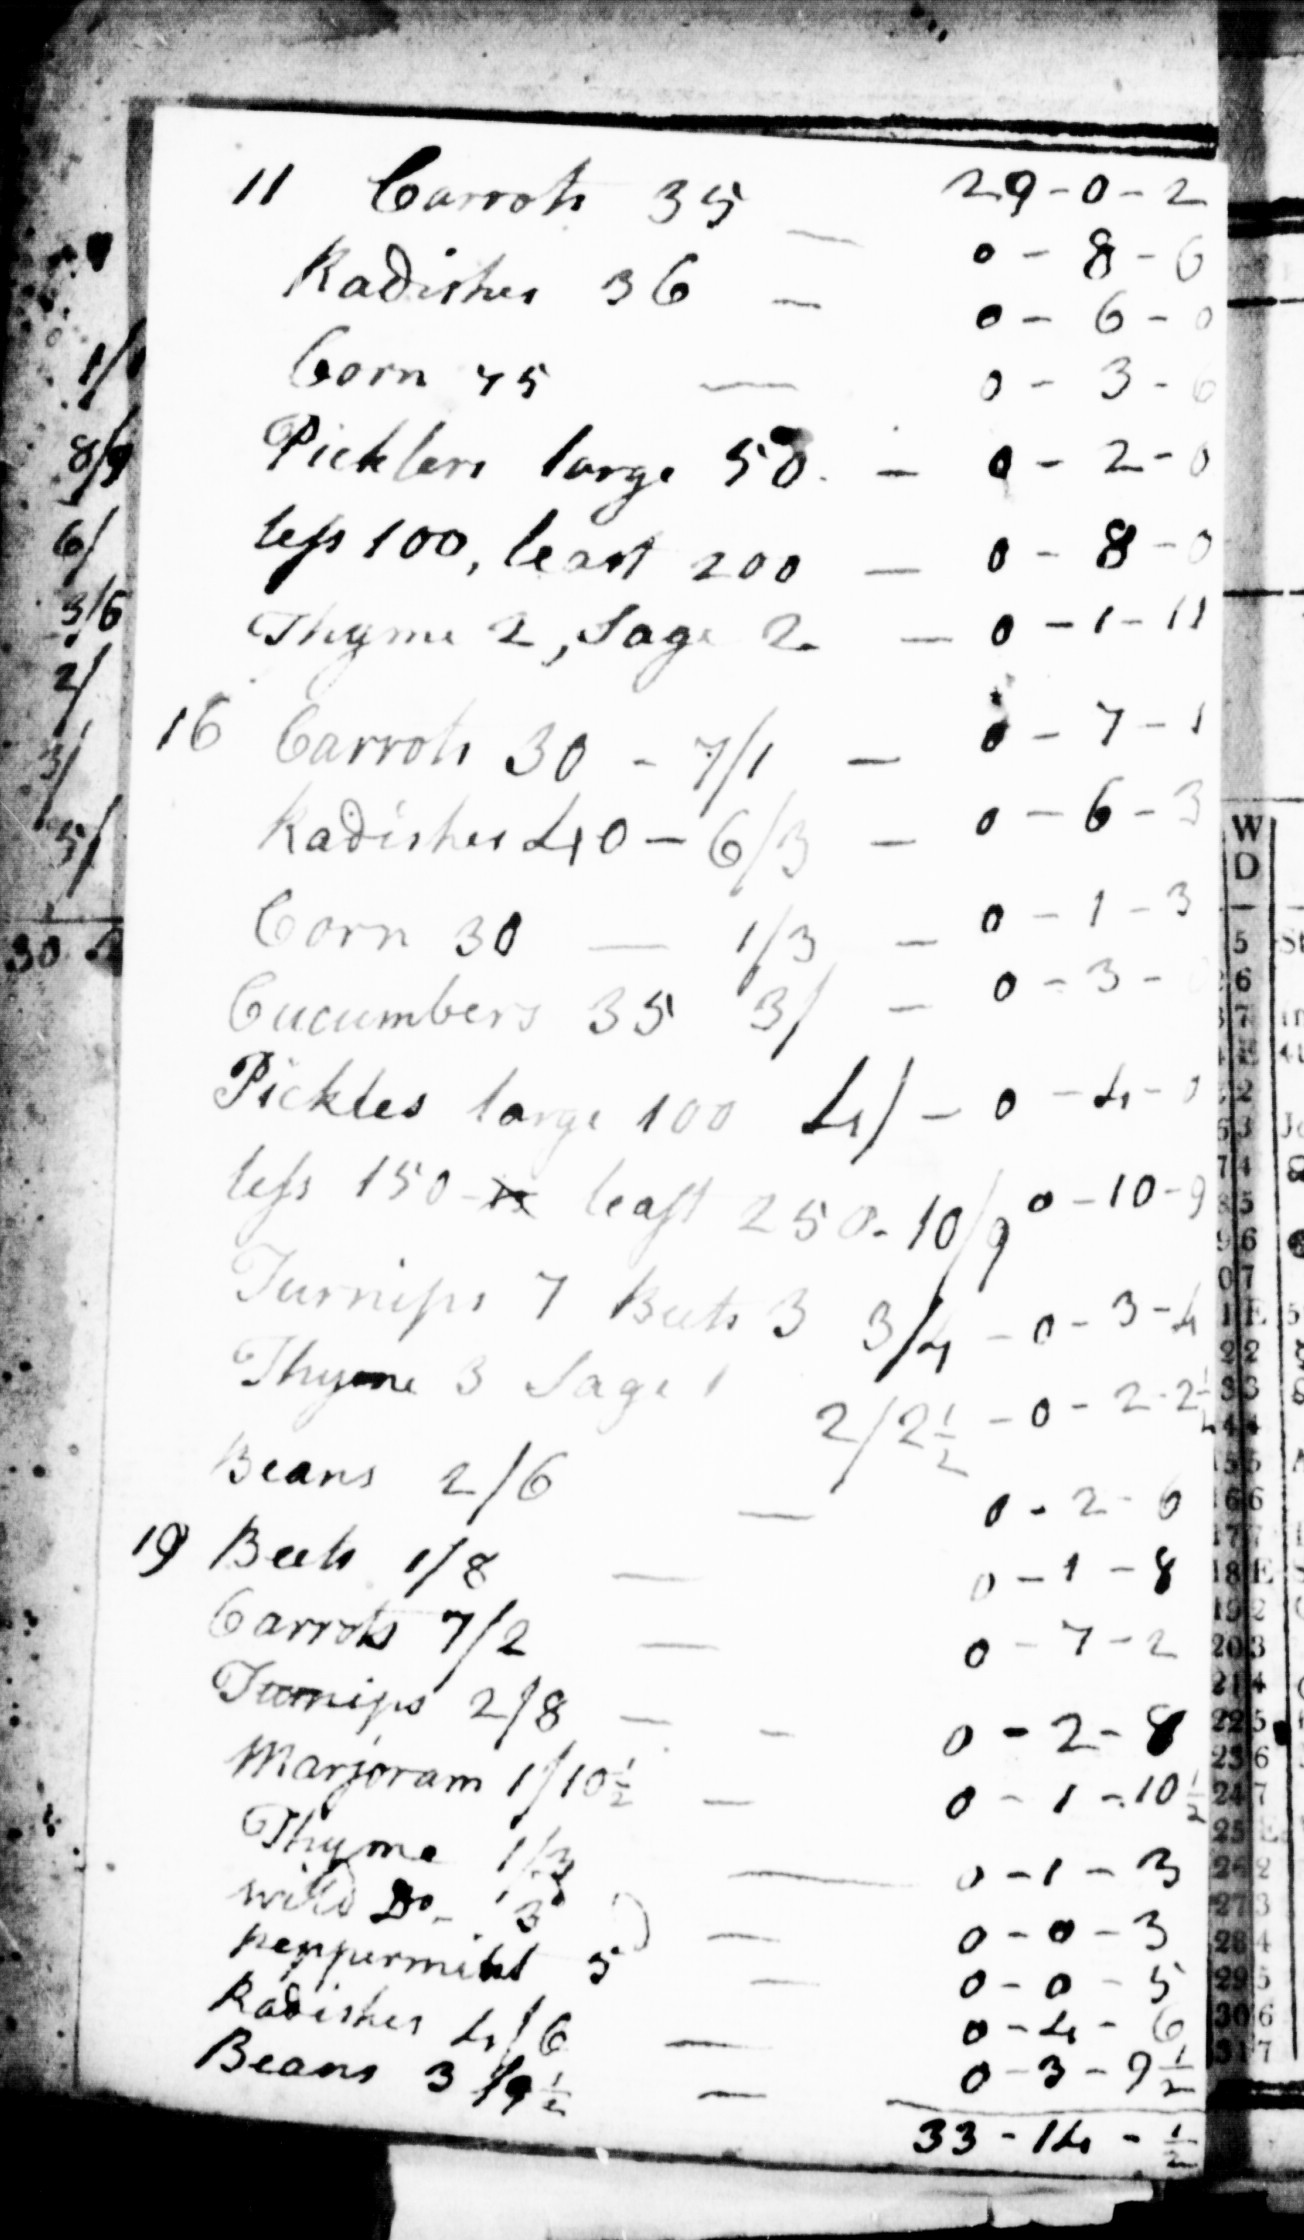 11 Carrots 35 — 29-0-2
0-8-6
Radishes 36 — 0-6-0
Corn 75 — 0-3-6
Picklers large 50. — 0-2-0
less 100, least 200 — 0-8-0
Thyme 2, Sage 2. — 0-1-11
16 Carrots 30 - 7/1 — 0-7-1
Radishes 40 - 6/3 — 0-6-3
Corn 30 — 1/3 — 0-1-3
Cucumbers 35 3/ — 0-3-0
Pickles large 100 4/ — 0-4-0
less 150 - least 250. 10/9 0-10-9
Turnips 7 Beets 3 3/4 - 0-3-4
Thyme 3 Sage 1 2/2½ - 0-2-2½
Beans 2/6 — 0-2-6
19 Beets 1/8 — 0-1-8
Carrots 7/2 — 0-7-2
Turnips 2/8 — - 0-2-8
Marjoram 1/10½ — 0-1-10½
Thyme 1/3 — 0-1-3
wild Do- 3 — 0-0-3
peppermint 5 — 0-0-5
Radishes 4/6 — 0-4-6
Beans 3/9½ — 0-3-9½
33-14-½
8/9
6/
3/6
2/
3/
5/
30
W
D